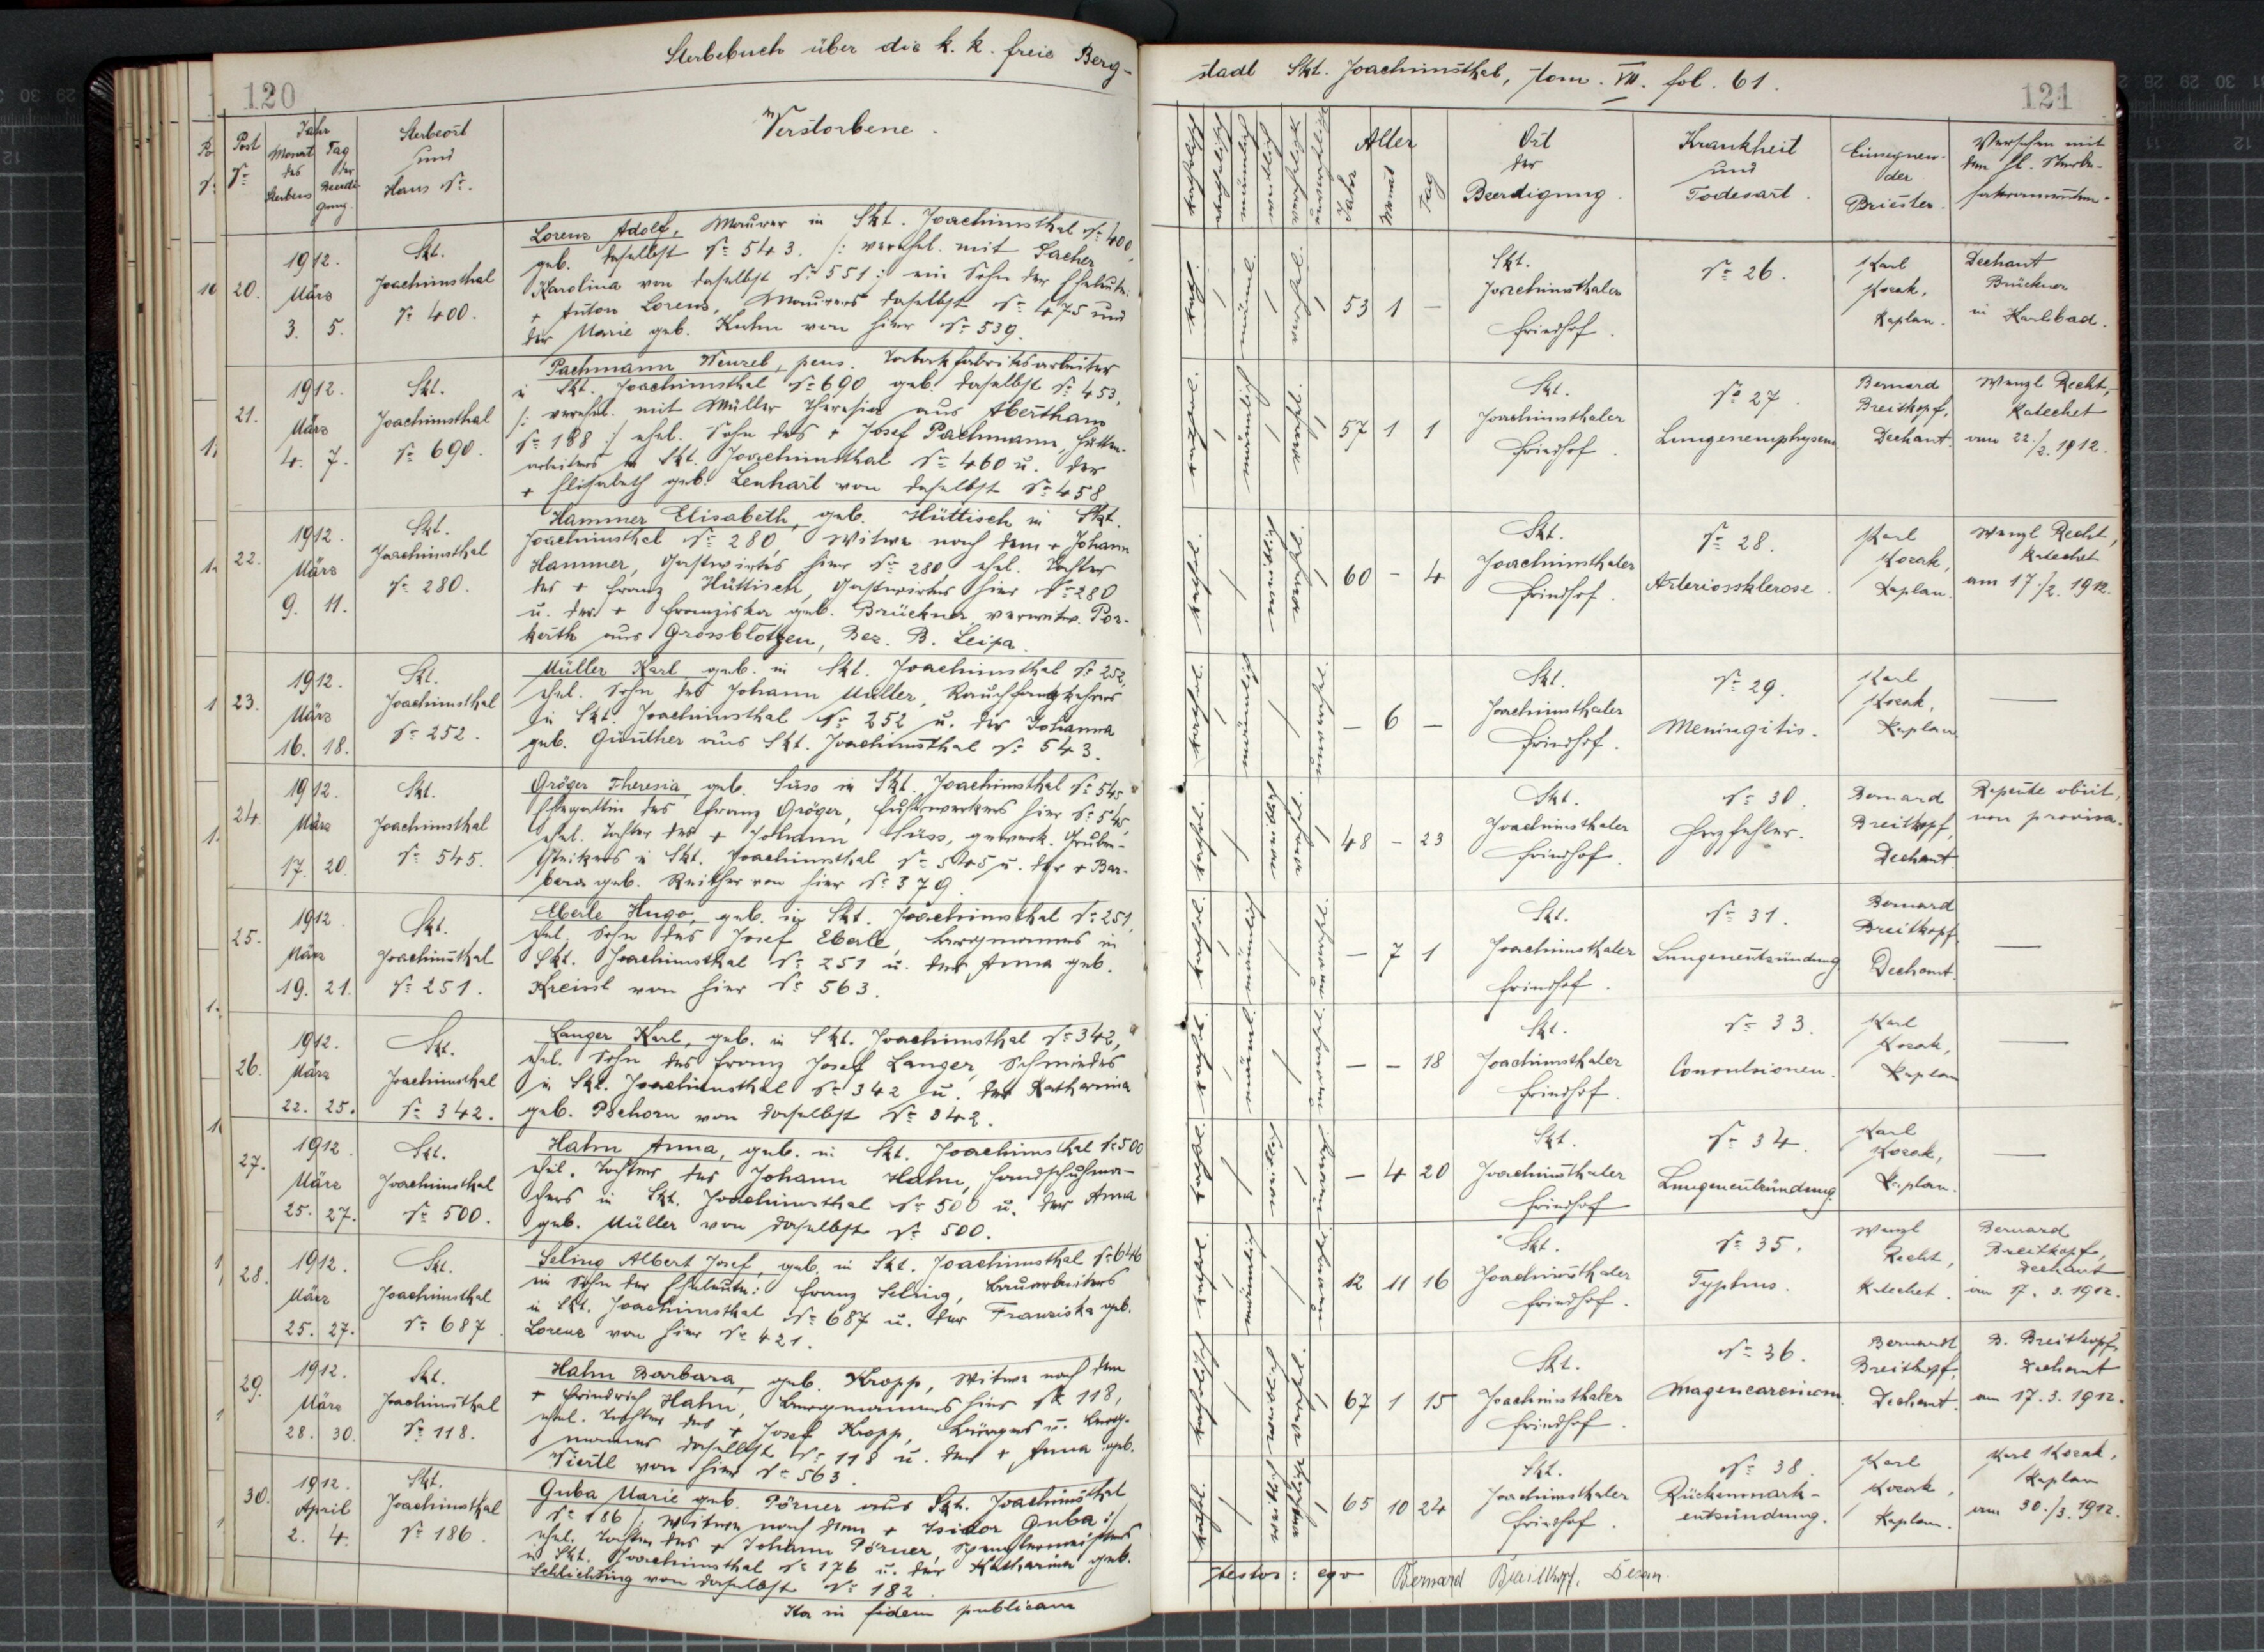 120
Sterbebuch über die k. k. freie Berg-
Post
Nr.
Jahr
Monat
des
Sterbens
Tag
der
Beerdi-
gung.
Sterbeort
und
Haus Nr.
Verstorbene.
20.
1912.
März
3. 5.
Skt.
Joachimsthal
Nr. 400.
Lorenz Adolf, Maurer in Skt. Joachimsthal Nr. 400,
geb. daselbst Nr. 543. /: verehel. mit Sacher
Karolina von daselbst Nr. 551 :/ ein Sohn der Eheleute:
+ Anton Lorenz, Maurers daselbst Nr. 475 und
der Marie geb. Kuhn von hier Nr. 539.
21.
1912.
März
4. 7.
Skt.
Joachimsthal
Nr. 690.
Pachmann Wenzel, pens. Tabakfabriksarbeiter
in Skt. Joachimsthal Nr. 690 geb. daselbst Nr. 453,
/: verehel. mit Müller Theresia aus Abertham
Nr. 188 :/ ehel. Sohn des + Josef Pachmann, Hütten-
arbeiters in Skt. Joachimsthal Nr. 460 u. der
+ Elisabeth geb. Lenhart von daselbst Nr. 458
22.
1912.
März
9. 11.
Skt.
Joachimsthal
Nr. 280.
Hammer Elisabeth, geb. Hüttisch in Skt.
Joachimsthal Nr. 280, Witwe nach dem + Johann
Hammer, Gastwirtes hier Nr. 280 ehel. Tochter
des + Franz Hüttisch, Gastwirtes hier Nr. 280
u. der + Franziska geb. Brückner verwitw. Por-
kerth aus Grossblötzen, Bez. B. Leipa.
23.
1912.
März
16. 18.
Skt.
Joachimsthal
Nr. 252.
Müller Karl geb. in Skt. Joachimsthal Nr. 252,
ehel. Sohn des Johann Müller, Rauchfangkehrers
in Skt. Joachimsthal Nr. 252 u. der Johanna
geb. Günther aus Skt. Joachimsthal Nr. 543.
24.
1912.
März
17. 20.
Skt.
Joachimsthal
Nr. 545.
Gröger Theresia, geb. Süss in Skt. Joachimsthal Nr. 545
Ehegattin des Franz Gröger, Fuhrwerkers hier Nr. 545,
ehel. Tochter des + Johann Süss, gewerk. Gruben-
steigers in Skt. Joachimsthal Nr. 545 u. der + Bar-
bara geb. Reither von hier Nr. 379.
25.
1912.
März
19. 21.
Skt.
Joachimsthal
Nr. 251.
Eberle Hugo, geb. in Skt. Joachimsthal Nr. 251,
ehel. Sohn des Josef Eberle, Bergmannes in
Skt. Joachimsthal Nr. 251 u. der Anna geb.
Kreissl von hier Nr. 563.
26.
1912.
März
22. 25.
Skt.
Joachimsthal
Nr. 342.
Langer Karl, geb. in Skt. Joachimsthal Nr. 342,
ehel. Sohn des Franz Josef Langer, Schmiedes
in Skt. Joachimsthal Nr. 342 u. der Katharina
geb. Pschorn von daselbst Nr. 342.
27.
1912.
März
25. 27.
Skt.
Joachimsthal
Nr. 500.
Hahn Anna, geb. in Skt. Joachimsthal Nr. 500
ehel. Tochter des Johann Hahn, Handschuhma-
chers in Skt. Joachimsthal Nr. 500 u. der Anna
geb. Müller von daselbst Nr. 500.
28.
1912.
März
25. 27.
Skt.
Joachimsthal
Nr. 687.
Seling Albert Josef, geb. in Skt. Joachimsthal Nr. 646
ein Sohn der Eheleute: Franz Seling, Bauarbeiters
in Skt. Joachimsthal Nr. 687 u. der Franziska geb.
Lorenz von hier Nr. 421.
29.
1912.
März
28. 30.
Skt.
Joachimsthal
Nr. 118.
Hahn Barbara, geb. Kropp, Witwe nach dem
+ Friedrich Hahn, Bergmannes hier Nr. 118,
ehel. Tochter des + Josef Kropp, Bürgers u. Berg-
mannes daselbst Nr. 118 u. der + Anna geb.
Viertl von hier Nr. 563.
30.
1912.
April
2. 4.
Skt.
Joachimsthal
Nr. 186.
Guba Marie geb. Pörner aus Skt. Joachimsthal
Nr. 186 /: Witwe nach dem + Isidor Guba :/
ehel. Tochter des + Johann Pörner, Spenglermeisters
in Skt. Joachimsthal Nr. 176 u. der Katharina geb.
Schlichting von daselbst Nr. 182.
Ita in fidem publicam
stadt Skt. Joachimsthal, tom. VII. fol. 61.
121
katholisch
akatholisch
männlich
weiblich
verehelicht
unverehelicht
Alter
Jahr
Monat
Tag
Ort
der
Beerdigung.
Krankheit
und
Todesart.
Einsegnen-
der
Priester.
Versehen mit
den hl. Sterbe-
sakramenten.
kath.
männl.
verehel.
53 1 —
Skt.
Joachimsthaler
Friedhof.
Nr. 26.
Karl
Kozak,
Kaplan.
Dechant
Brückner
in Karlsbad.
kathol.
männlich
verehel.
57 1 1
Skt.
Joachimsthaler
Friedhof.
Nr. 27.
Lungenemphysem
Bernard
Breitkopf,
Dechant.
Wenzl Recht,
Katechet
am 22./2. 1912.
kathol.
weiblich
verehel.
60 — 4
Skt.
Joachimsthaler
Friedhof.
Nr. 28.
Arteriossklerose.
Karl
Kozak,
Kaplan.
Wenzl Recht,
Katechet
am 17./2. 1912.
kathol.
männlich
unverehel.
— 6 —
Skt.
Joachimsthaler
Friedhof.
Nr. 29.
Meningitis.
Karl
Kozak,
Kaplan
—
kathol.
weiblich
verehel.
48 — 23
Skt.
Joachimsthaler
Friedhof.
Nr. 30.
Herzfehler.
Bernard
Breitkopf,
Dechant
Repente obiit,
non provisa.
kathol.
männlich
unverehel.
— 7 1
Skt.
Joachimsthaler
Friedhof.
Nr. 31.
Lungenentzündung
Bernard
Breitkopf
Dechant.
—
kathol.
männl.
unverehel.
— — 18
Skt.
Joachimsthaler
Friedhof.
Nr. 33.
Convulsionen.
Karl
Kozak,
Kaplan
—
kathol.
weiblich
unverehel.
— 4 20
Skt.
Joachimsthaler
Friedhof
Nr. 34.
Lungenentzündung
Karl
Kozak,
Kaplan.
—
kathol.
männlich
unverehel.
12 11 16
Skt.
Joachimsthaler
Friedhof.
Nr. 35.
Typhus.
Wenzl
Recht,
Katechet.
Bernard
Breitkopf,
Dechant
am 17. 3. 1912.
katholisch
weiblich
verehel.
67 1 15
Skt.
Joachimsthaler
Friedhof.
Nr. 36.
Magencarcinom.
Bernard
Breitkopf,
Dechant.
B. Breitkopf,
Dechant
am 17. 3. 1912.
kathol.
weiblich
verehelicht
65 10 24
Skt.
Joachimsthaler
Friedhof.
Nr. 38.
Rückenmark-
entzündung.
Karl
Kozak,
Kaplan.
Karl Kozak,
Kaplan
am 30./3. 1912.
testor: ego Bernard Breitkopf, Decan.